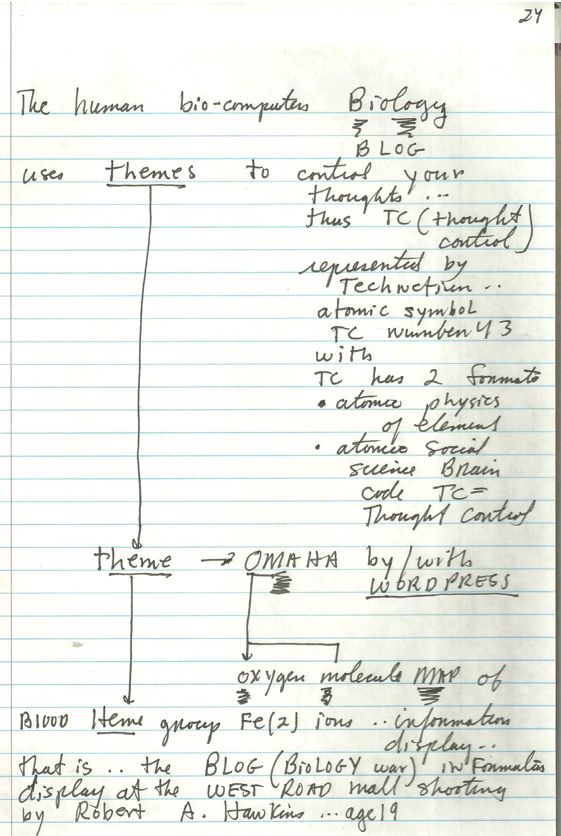 24
The human bio-computers Biology
BLOG
uses themes to control your
thoughts ...
thus TC (thought
control)
represented by
Technetium ..
atomic symbol
TC number 43
with
TC has 2 formats
• atomic physics
of element
• atomic social
science Brain
code TC =
Thought Control
theme → OMAHA by/with
WORDPRESS
oxygen molecule MAP of
Blood Heme group Fe(2) ions .. information
display..
that is .. the BLOG (BIOLOGY war) in Formation
display at the WEST ROAD mall shooting
by Robert A. Hawkins ... age 19